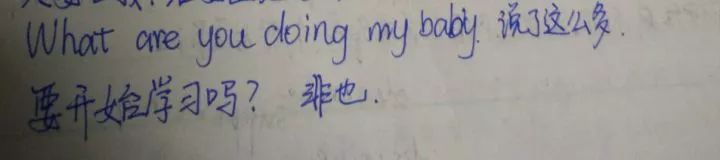 What are you doing my baby. 说了这么多.
要开始学习吗? 非也.